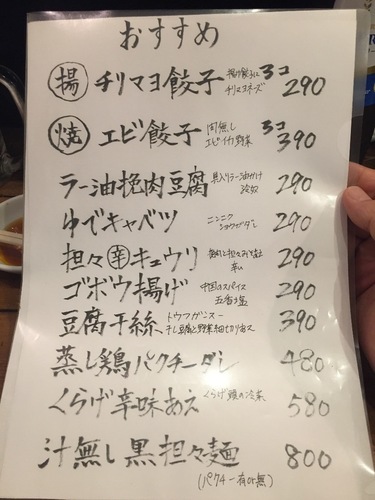 おすすめ
揚 チリマヨ餃子 揚げ餃子に チリマヨネーズ 3コ 290
焼 エビ餃子 肉無し エビ・イカ・野菜 3コ 390
ラー油挽肉豆腐 具入りラー油かけ 冷奴 290
ゆでキャベツ ニンニク ショウガダレ 290
担々辛キュウリ 辛い 290
ゴボウ揚げ 中国のスパイス 五香塩 290
豆腐干絲 トウフガンスー 干し豆腐と野菜細切り 390
蒸し鶏パクチーダレ 480
くらげ辛味あえ くらげ頭の冷菜 580
汁無し黒担々麺 800
(パクチー有or無)